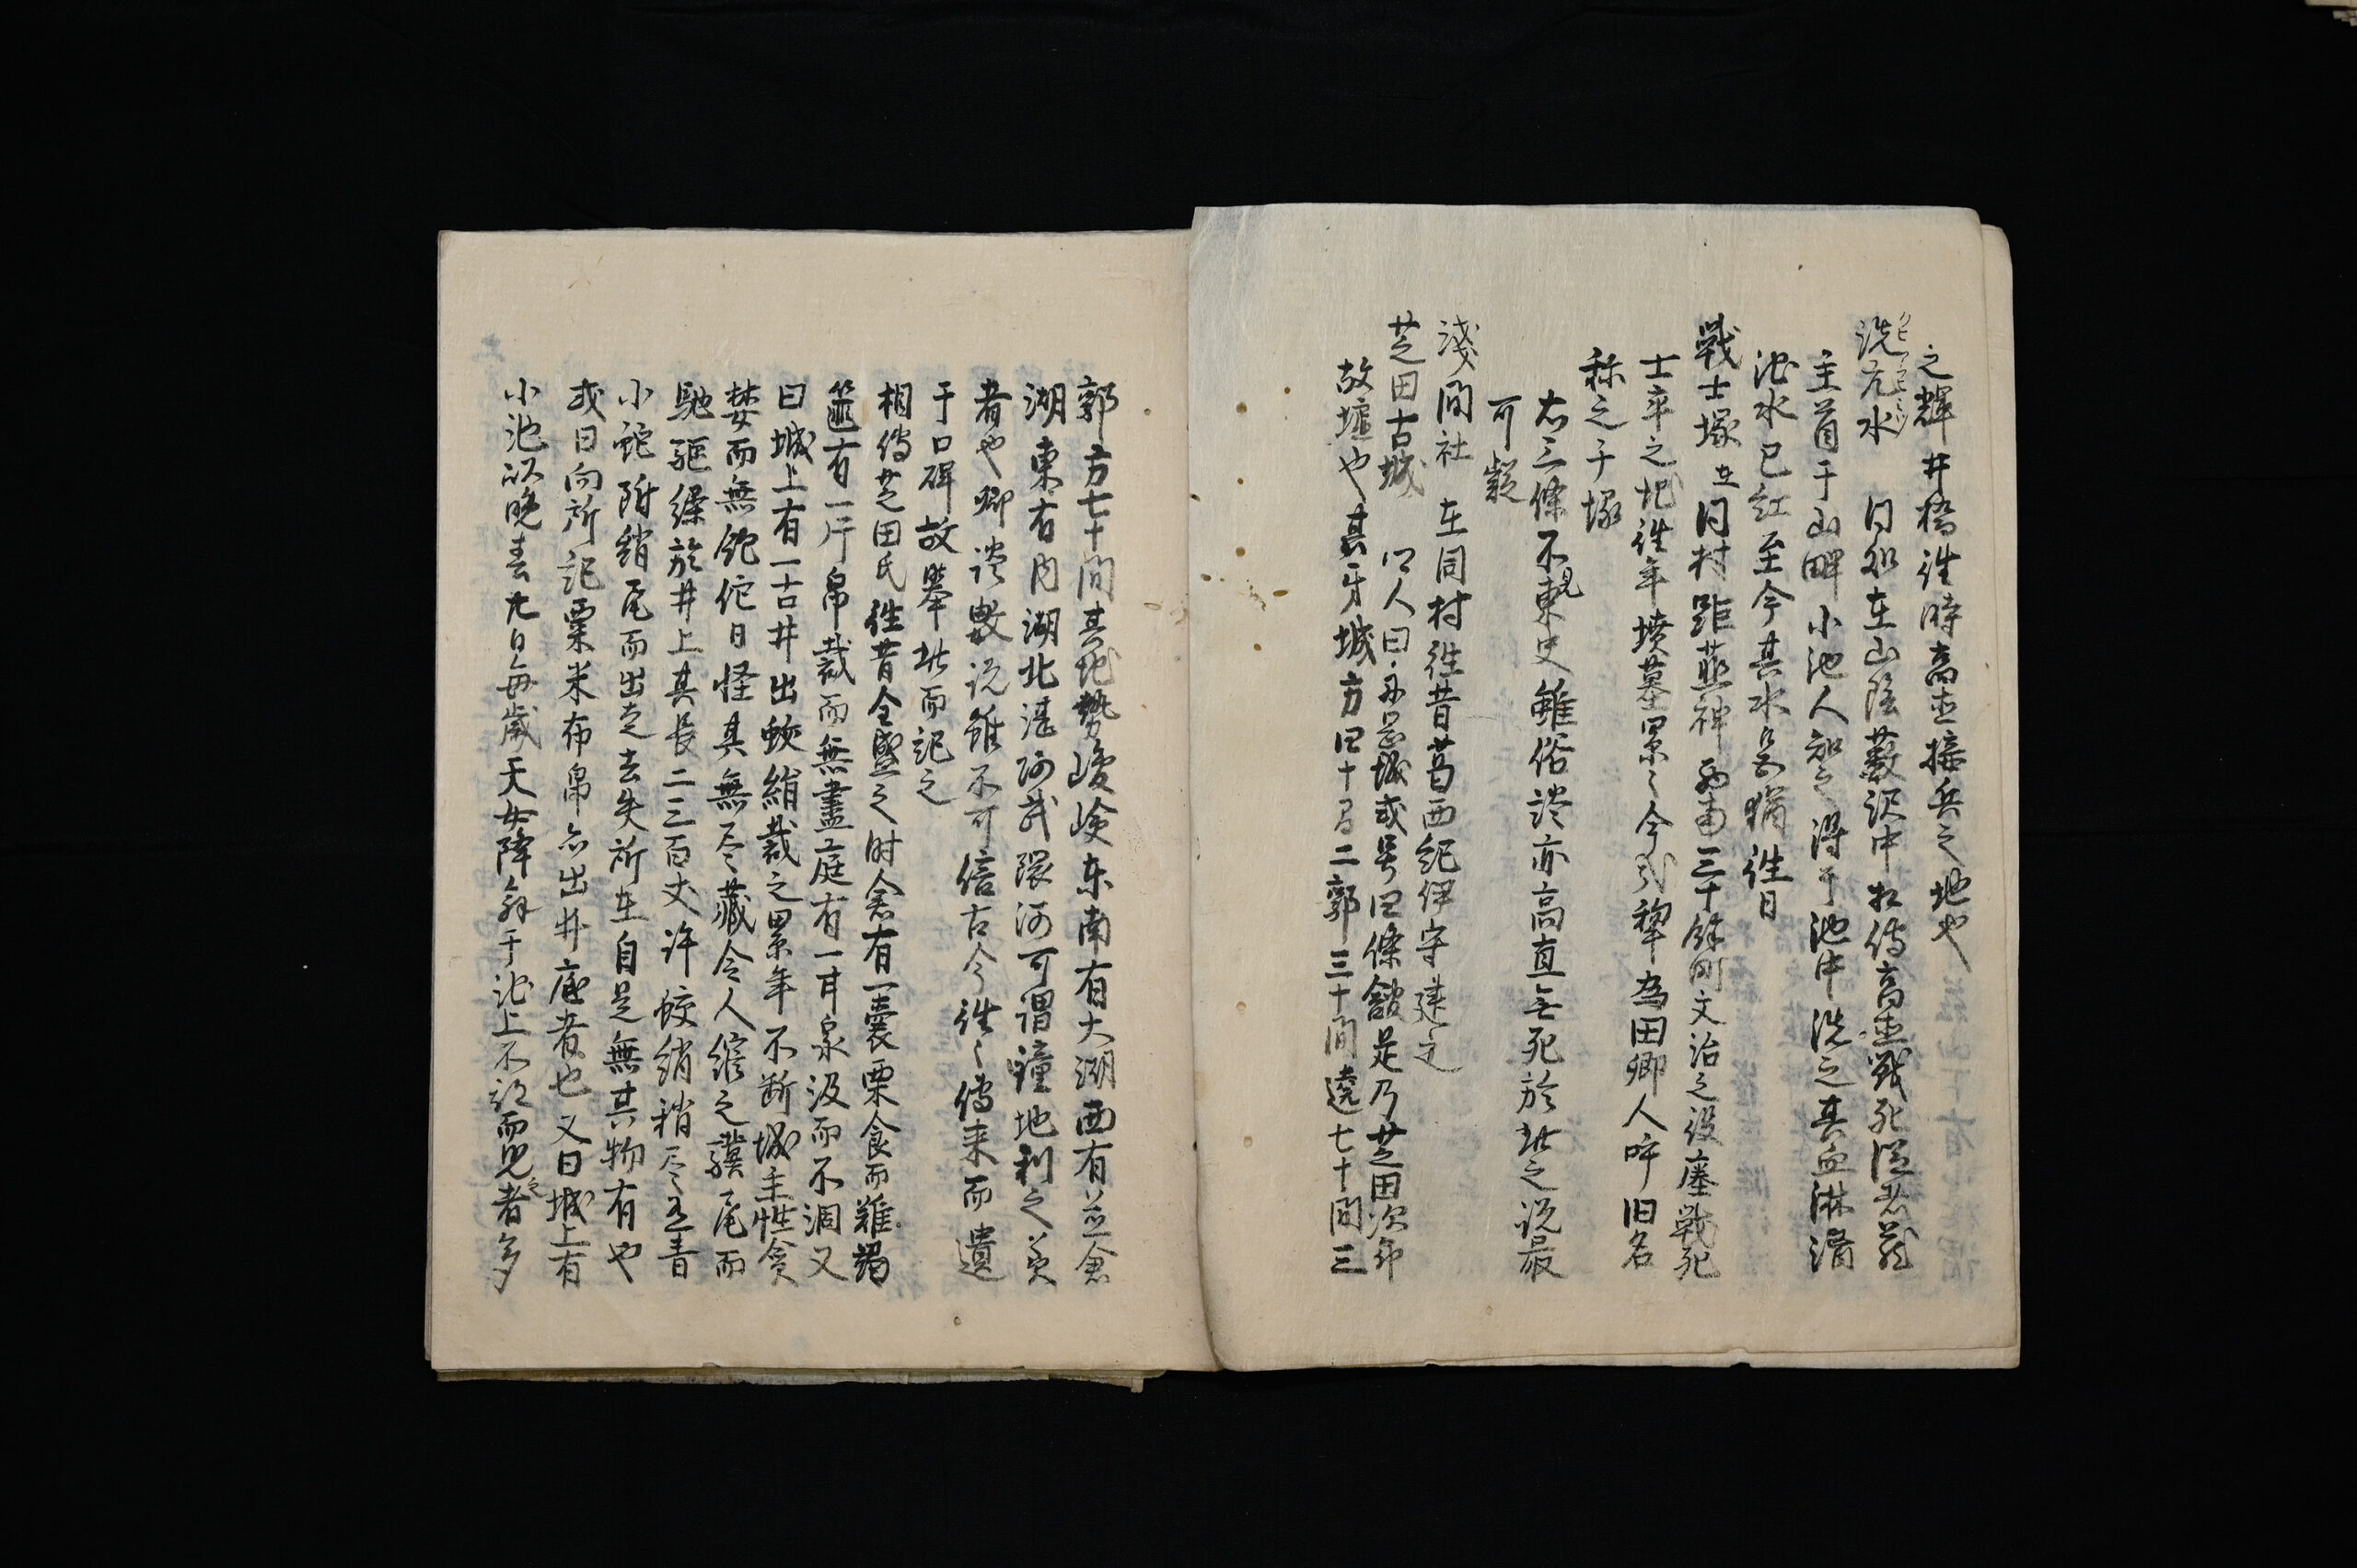 之輝井橋往時高直接兵之地也
洗元水 同処在山陰藪沢中相傳高直戦死従者蔵
主首于山畔小池人知之得于池中洗之其血淋漓
池水已紅至今其水色猶往日
戦士塚 在同村距熊神西南三十餘町文治之役屢戦死
士卒之地往年墳墓累々今則犂為田郷人呼旧名
称之千塚
右三條不見東史雖俗諺亦高直無死於此之説最
可疑
淺間社 在同村往昔葛西紀伊守建之
芝田古城 口人曰城或号四條舘是乃芝田次郎
故墟也其牙城方四十間二郭三十間遶七十間三
郭方七十間其地勢峻嶮东南有大湖西有並倉
湖東有内湖北湛河或環河可謂鐘地利之美
者也郷談數説雖不可信古今往々傳来而遺
于口碑故擧此而記之
相傳芝田氏往昔全盛之时倉有一囊粟食而難竭
篋有一片帛裁而無盡庭有一井泉汲而不涸又
曰城上有一古井出蛟絹裁之累年不断城主性貪
婪而無飽佗日怪其無尽藏令人縮之驥尾而
馳驅繰於井上其長二三百丈许蛟綃稍尽至青
小蛇附綃尾而出走去失所在自是無其物有也
或曰向所記粟米布帛亦出井底者也又曰城上有
小池以晩春九日每歲天女降舞于池上不認而見者多